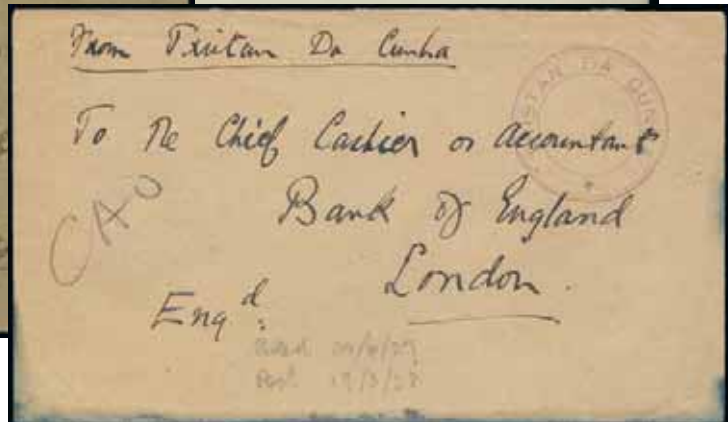 From Tristan Da Cunha
To The Chief Cashier or Accountant
Bank of England
London.
Eng^d:
CAO
19/3/28